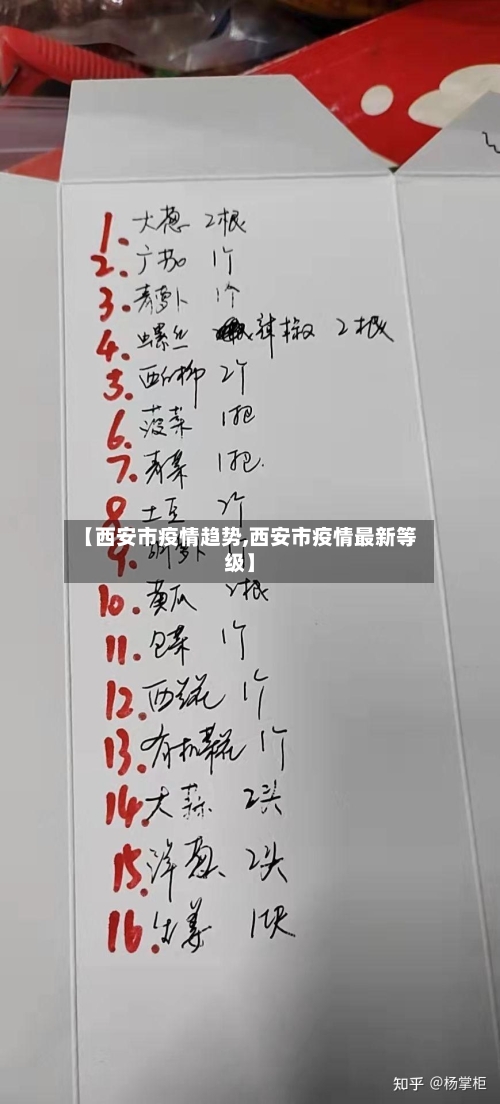 1. 大葱 2根
2. 广茄 1个
3. 青萝卜 1个
4. 螺丝 辣椒 2根
5. 西红柿 2个
6. 菠菜 1把
7. 青菜 1把.
8 土豆 2个
【西安市疫情趋势,西安市疫情最新等
级】
9. 胡萝卜
10. 黄瓜 2根
11. 包菜 1个
12. 西兰花 1个
13. 有机菜花 1个
14. 大蒜. 2头
15. 洋葱. 2头
16. 生姜 1块
知乎 @杨掌柜